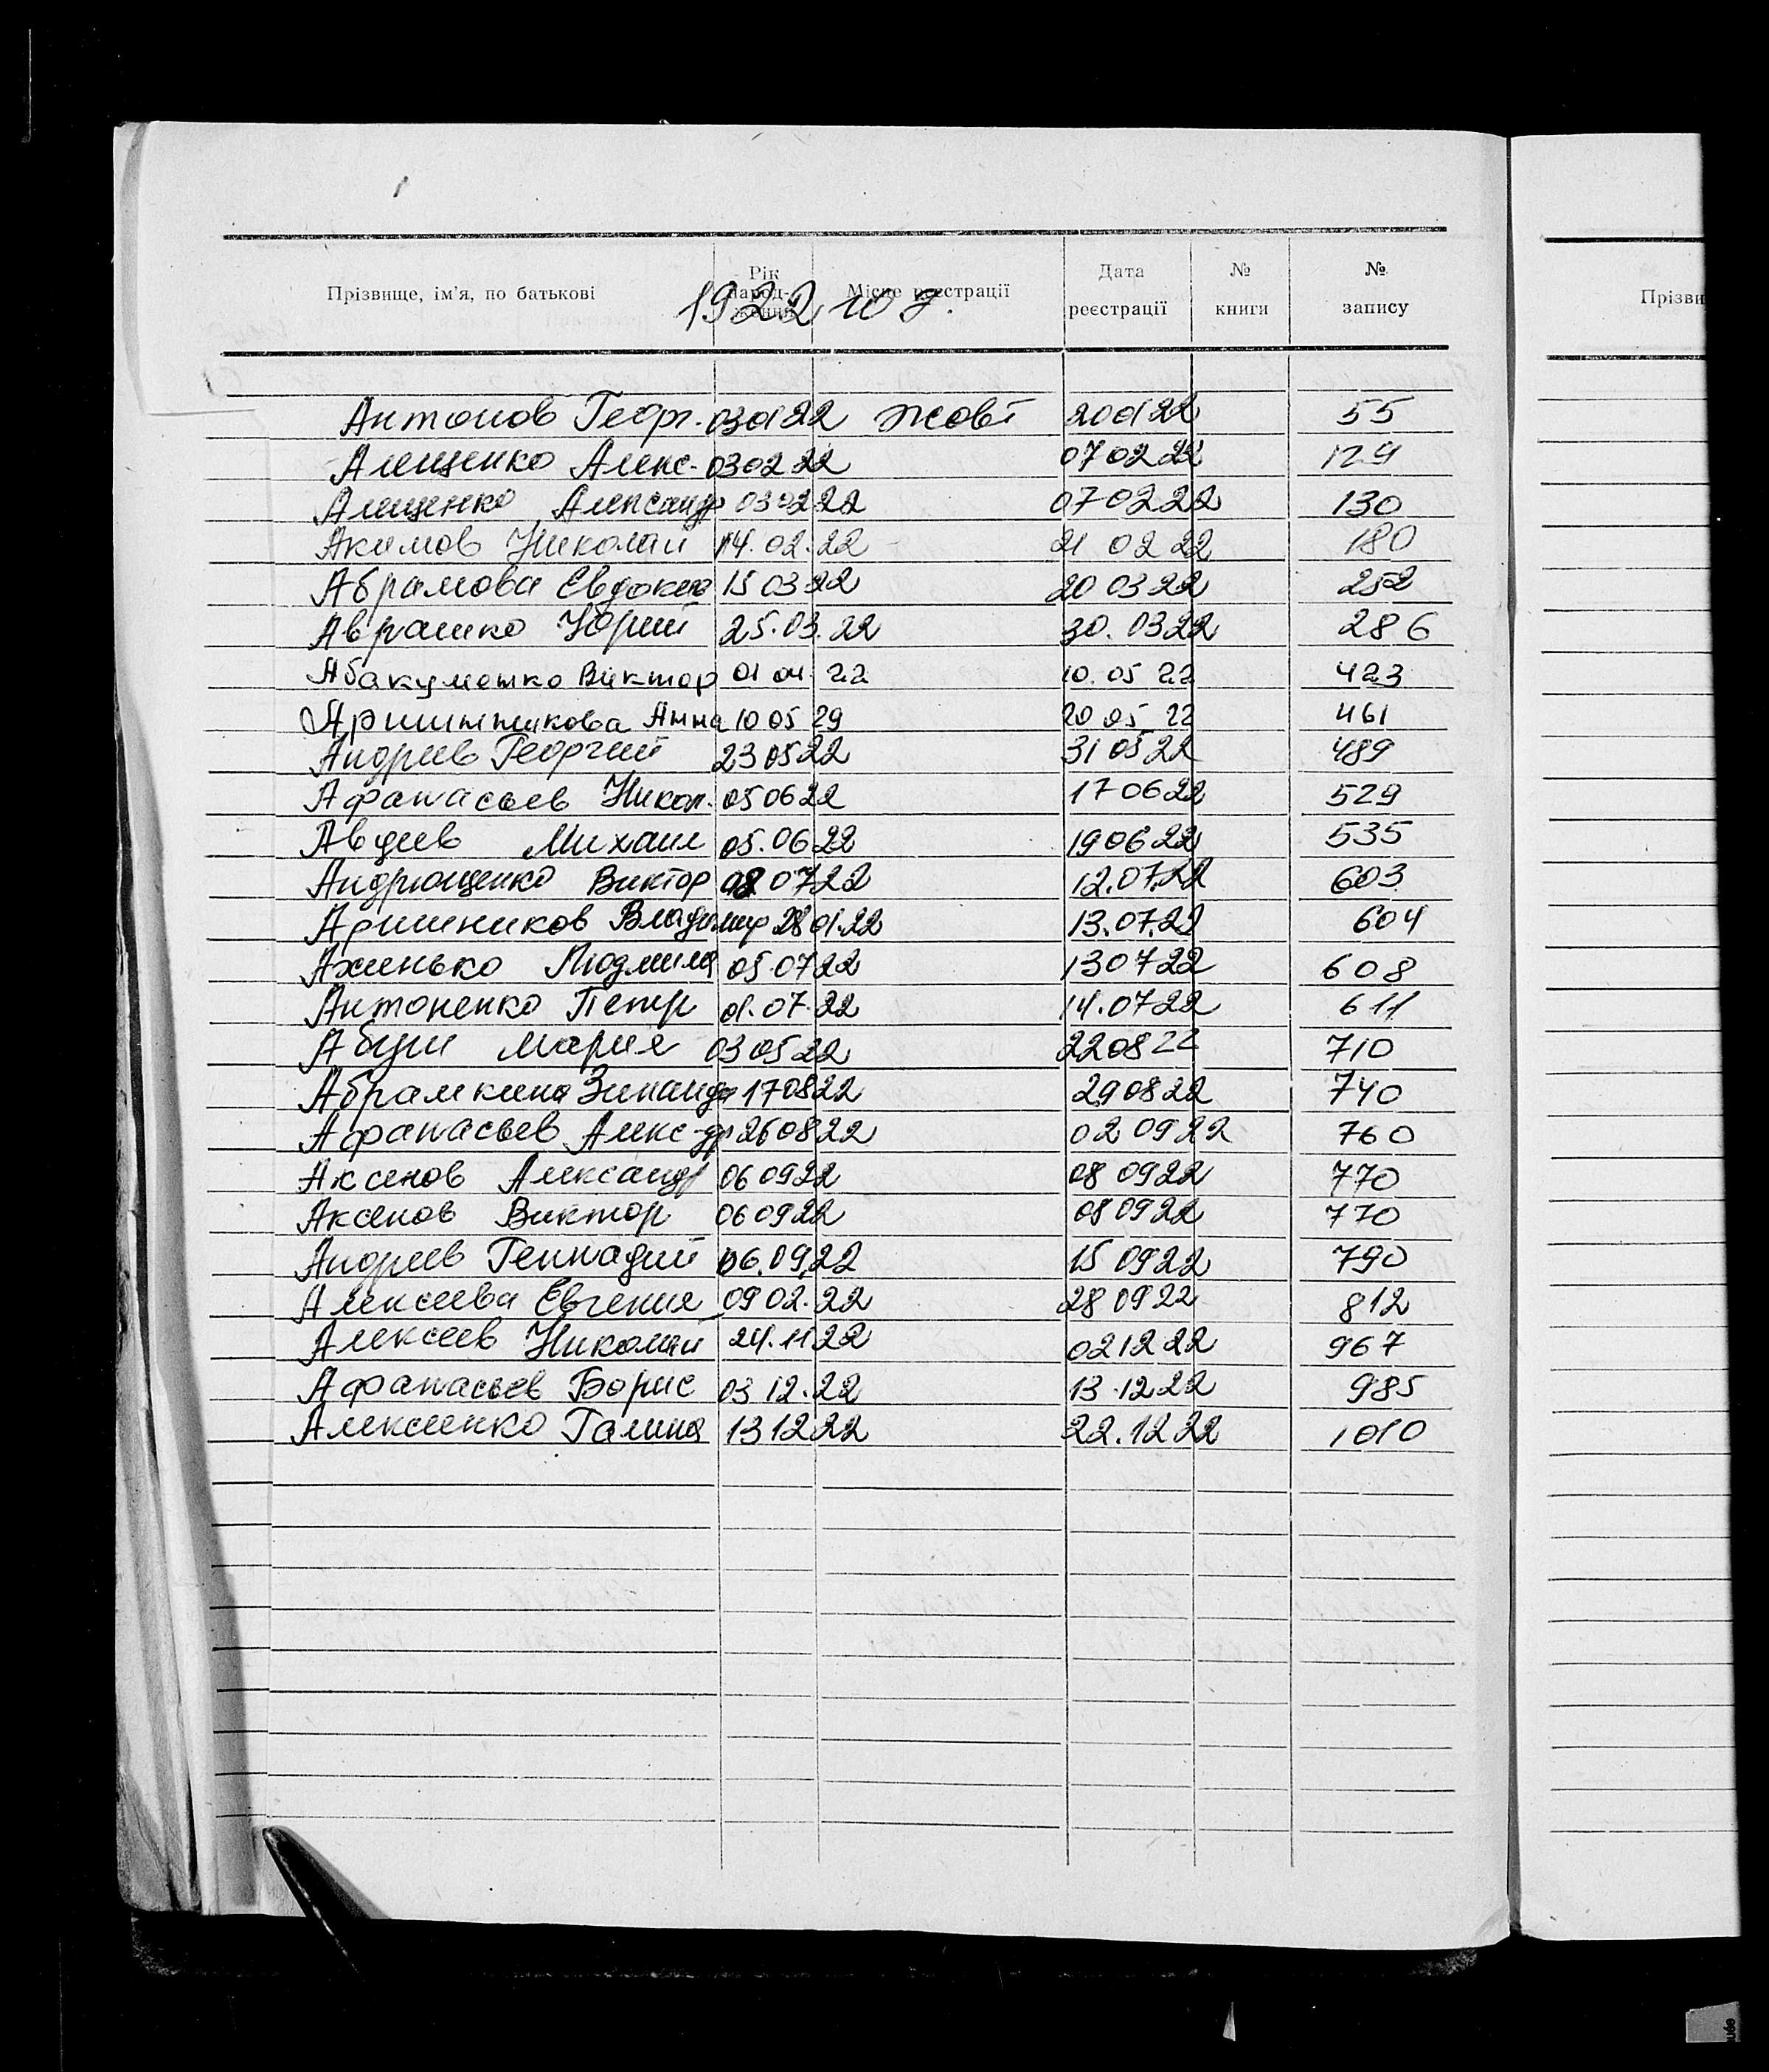 Прізвище, ім'я, по батькові Рік народ-ження Місце реєстрації Дата реєстрації № книги № запису
Прізви
1922 год.
Антонов Георг. 03 01 22 Жовт 20 01 22 55
Алещенко Алекс. 03 02 22 07 02 22 129
Алещенко Александр 03 02 22 07 02 22 130
Акимов Николай 14.02.22 21 02 22 180
Абрамова Евдокия 15 03 22 20 03 22 252
Аврашко Юрий 25.03.22 30.03 22 286
Абакумешко Виктор 01 04 22 10.05 22 423
Анна 10 05 29 20 05 22 461
Андреев Георгий 23 05 22 31 05 22 489
Афанасьев Никол. 05 06 22 17 06 22 529
Авдеев Михаил 05.06 22 19 06 22 535
Андрющенко Виктор 08 07 22 12.07.22 603
Аришников Владимир 28 01.22 13.07.22 604
Ахинько Людмила 05 07 22 13 07 22 608
Антоненко Петр 01.07.22 14.07 22 611
Мария 03 05 22 22 08 22 710
Абрамкина Зинаида 17 08 22 29 08 22 740
Афанасьев Алекс-др 26 08 22 02 09 22 760
Аксенов Александр 06 09 22 08 09 22 770
Аксенов Виктор 06 09 22 08 09 22 770
Андреев Геннадий 06.09.22 15 09 22 790
Алексеева Евгения 09 02.22 28 09 22 812
Алексеев Николай 24.11 22 02 12 22 967
Афанасьев Борис 03 12.22 13.12 22 985
Алексеенко Галина 13 12 22 22.12 22 1010